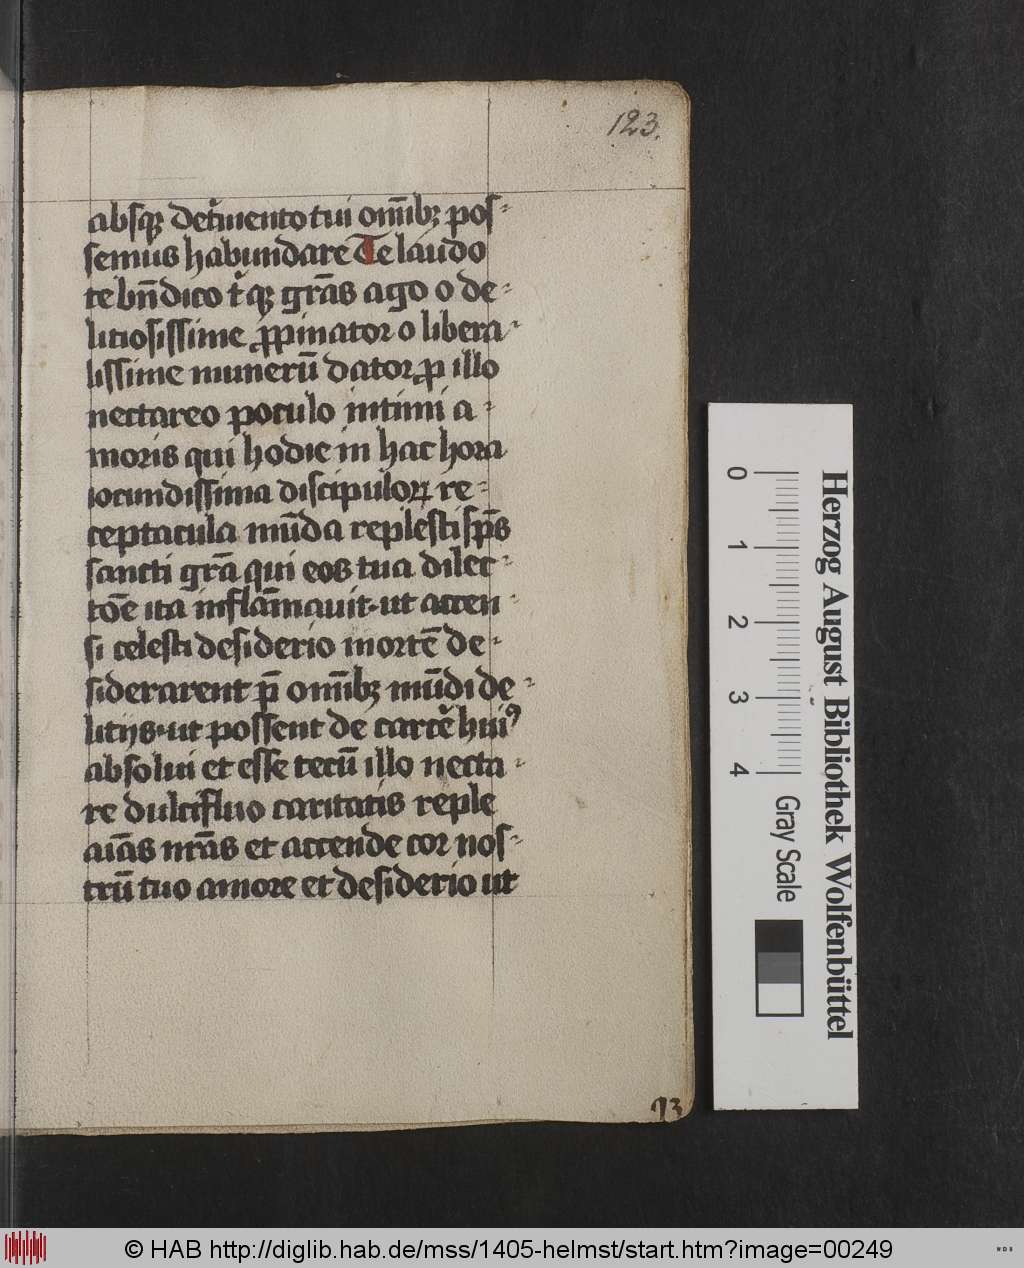 123.
absqꝫ det᷑mento tui om̅ibꝫ pos-
semus habundare Te laudo
te bn̅dico t᷑ qꝫ gra̅s ago o de-
litiosissime ꝓpinator o libera-
lissime muneru̅ dator ꝓ illo
nectareo poculo intimi a-
moris qui hodie in hac hora
iocundissima discipuloꝝ re-
ceptacula mu̅da replesti sp̅s
sancti gra̅ qui eos tua dilec-
to̅e ita infla̅mauit·ut accen-
si celesti desiderio morte̅ de-
siderarent p̅ om̅ibꝫ mu̅di de-
litijs·ut possent de carce᷑ huiꝯ
absolui et esse tecu̅ illo necta-
re dulcifluo caritatis reple
ai̅as nr̅as et accende cor nos-
tru̅ tuo amore et desiderio ut
93
0 1 2 3 4
Gray Scale
Herzog August Bibliothek Wolfenbüttel
© HAB http://diglib.hab.de/mss/1405-helmst/start.htm?image=00249